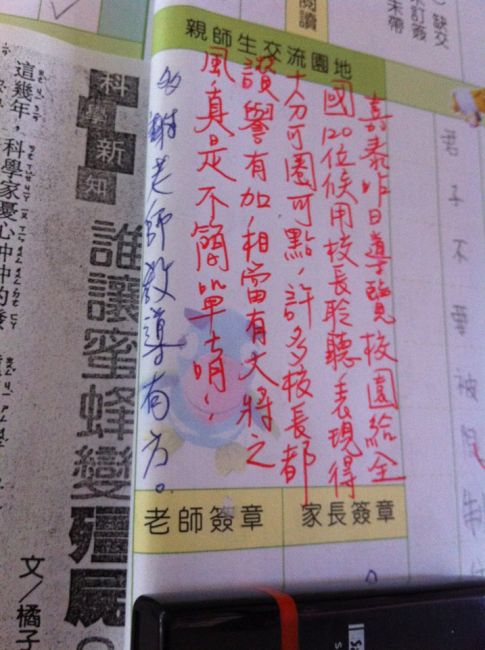 閱讀
缺交
未訂簽
未帶
親師生交流園地
嘉泰昨日導覽校園給全
國120位候用校長聆聽,表現得
大分可圈可點,許多校長都
讚譽有加,相當有大將之
風真是不簡單哨!
感謝老師教導有方。
老師簽章
家長簽章
君子不要被
科學新知
誰讓蜜蜂變殭屍
文/橘子
這幾年,科學家憂心忡忡的發